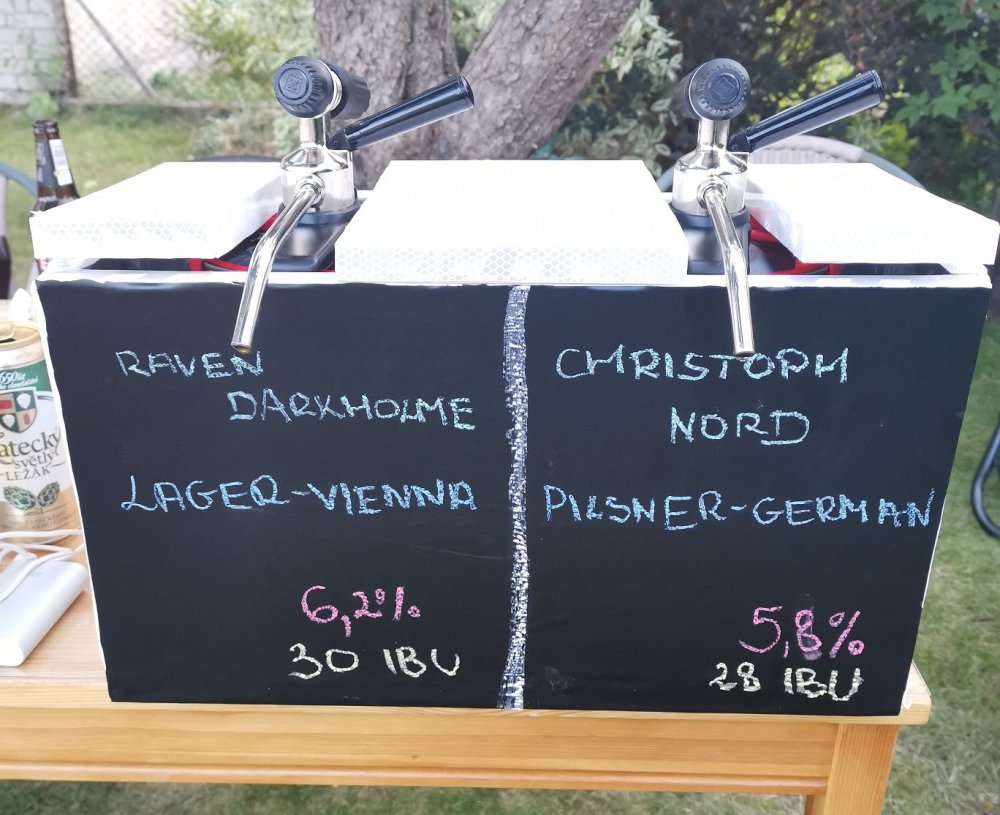 RAVEN
DARKHOLME
LAGER-VIENNA
6,2%
30 IBU
CHRISTOPH
NORD
PILSNER-GERMAN
5,8%
28 IBU
atecký
světlý
LEŽÁK